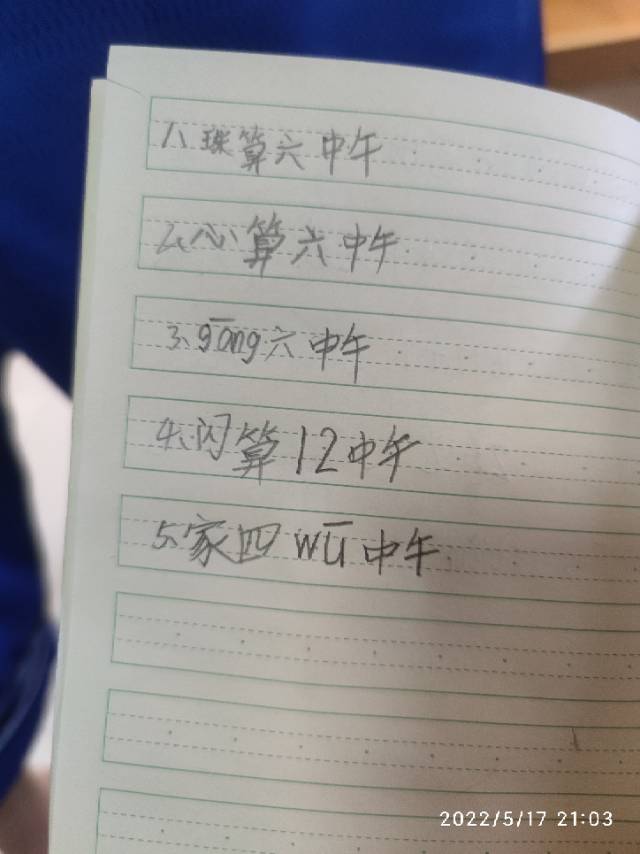 1、珠算六中午
2、心算六中午
3、gōng六中午
4、闪算12中午
5、家四wū中午
2022/5/17 21:03